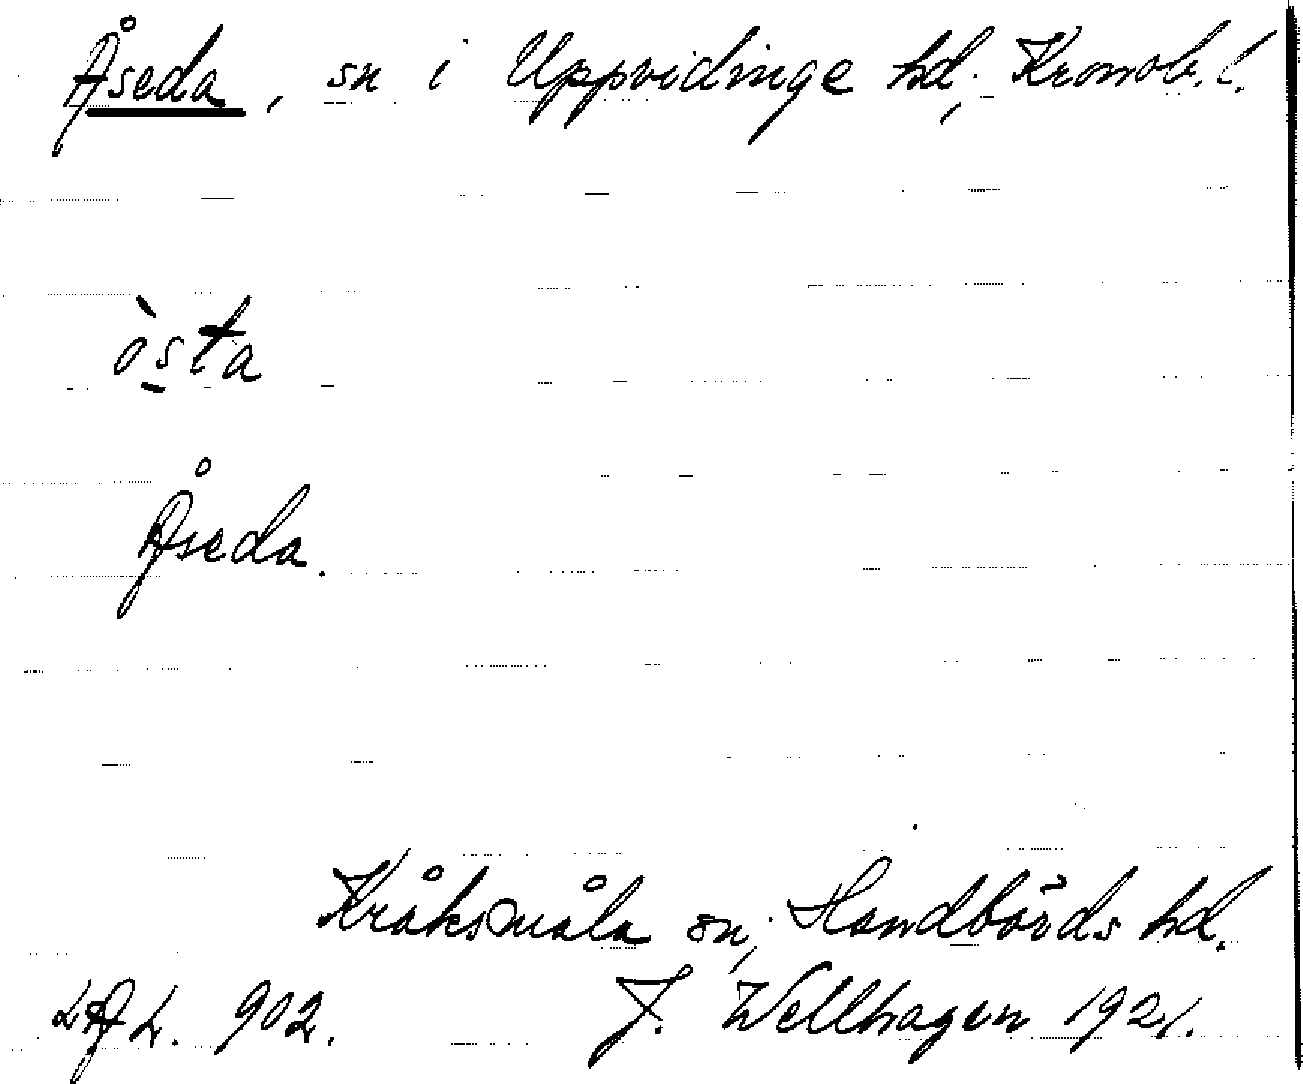 Åseda, sn i Uppvidinge hd, Kronob. l.
òsta
Åseda.
Kråksmåla sn, Handbörds hd.
902. J. Wellhagen 1921.